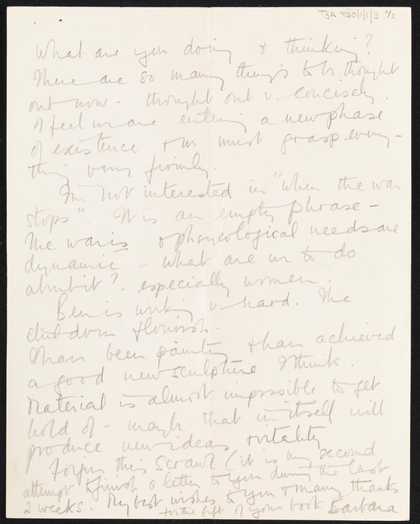 TGA 9310/1/1/2 1/2
What are you doing & thinking?
There are so many things to be thought
out now - thought out v. concisely.
I feel we are entering a new phase
of existence & we must grasp every-
thing very firmly.
I'm not interested in "when the war
stops". It is an empty phrase -
The war is & physcological needs are
dynamic - what are we to do
about it? especially women.
Ben is working v. hard. The
children flourish.
I have been painting & have achieved
a good new sculpture I think.
Material is almost impossible to get
hold of - maybe that in itself will
produce new ideas & vitality
Forgive this scrawl (it is my second
attempt to finish a letter to you during the last
2 weeks. My best wishes to you & many thanks
for the gift of your book Barbara